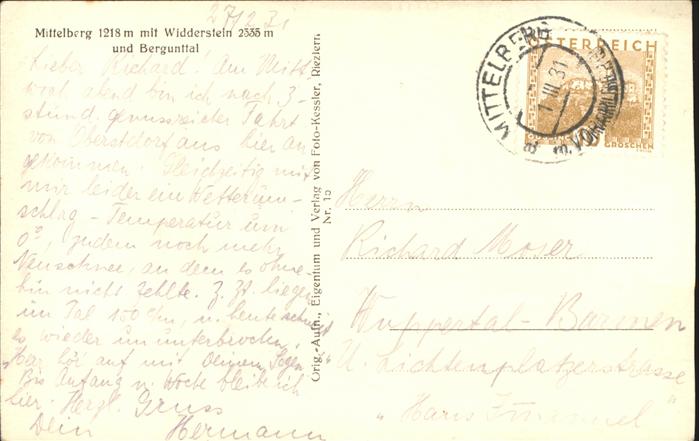 27/2 31
Mittelberg 1218 m mit Widderstein 2535 m
und Bergunttal
Lieber Richard! Am Mitt
woch abend bin ich nach 3-
stünd. genussreicher Fahrt
von Oberstdorf aus hier an
gekommen. Gleichzeitig mit
mir leider ein Wetterum-
schlag - Temperatur um
0° zudem noch mehr
Neuschnee, an dem es ohne-
hin nicht fehlte. Z. Zt. liegen
im Tal 100 cm, u. heute schneit
es wieder ununterbrochen.
„Herr, hör auf mit Deinem Segen“
Bis Anfang n. Woche bleibe ich
hier. Herzl. Gruss
Dein Hermann
Orig.-Aufn., Eigentum und Verlag von Foto-Kessler, Riezlern.
Nr. 15
ÖSTERREICH
GROSCHEN
MITTELBERG
VORARLBERG
III 31
Herrn
Richard Moser
Wuppertal-Barmen
U. Lichtenplatzerstrasse
„Haus Immanuel“